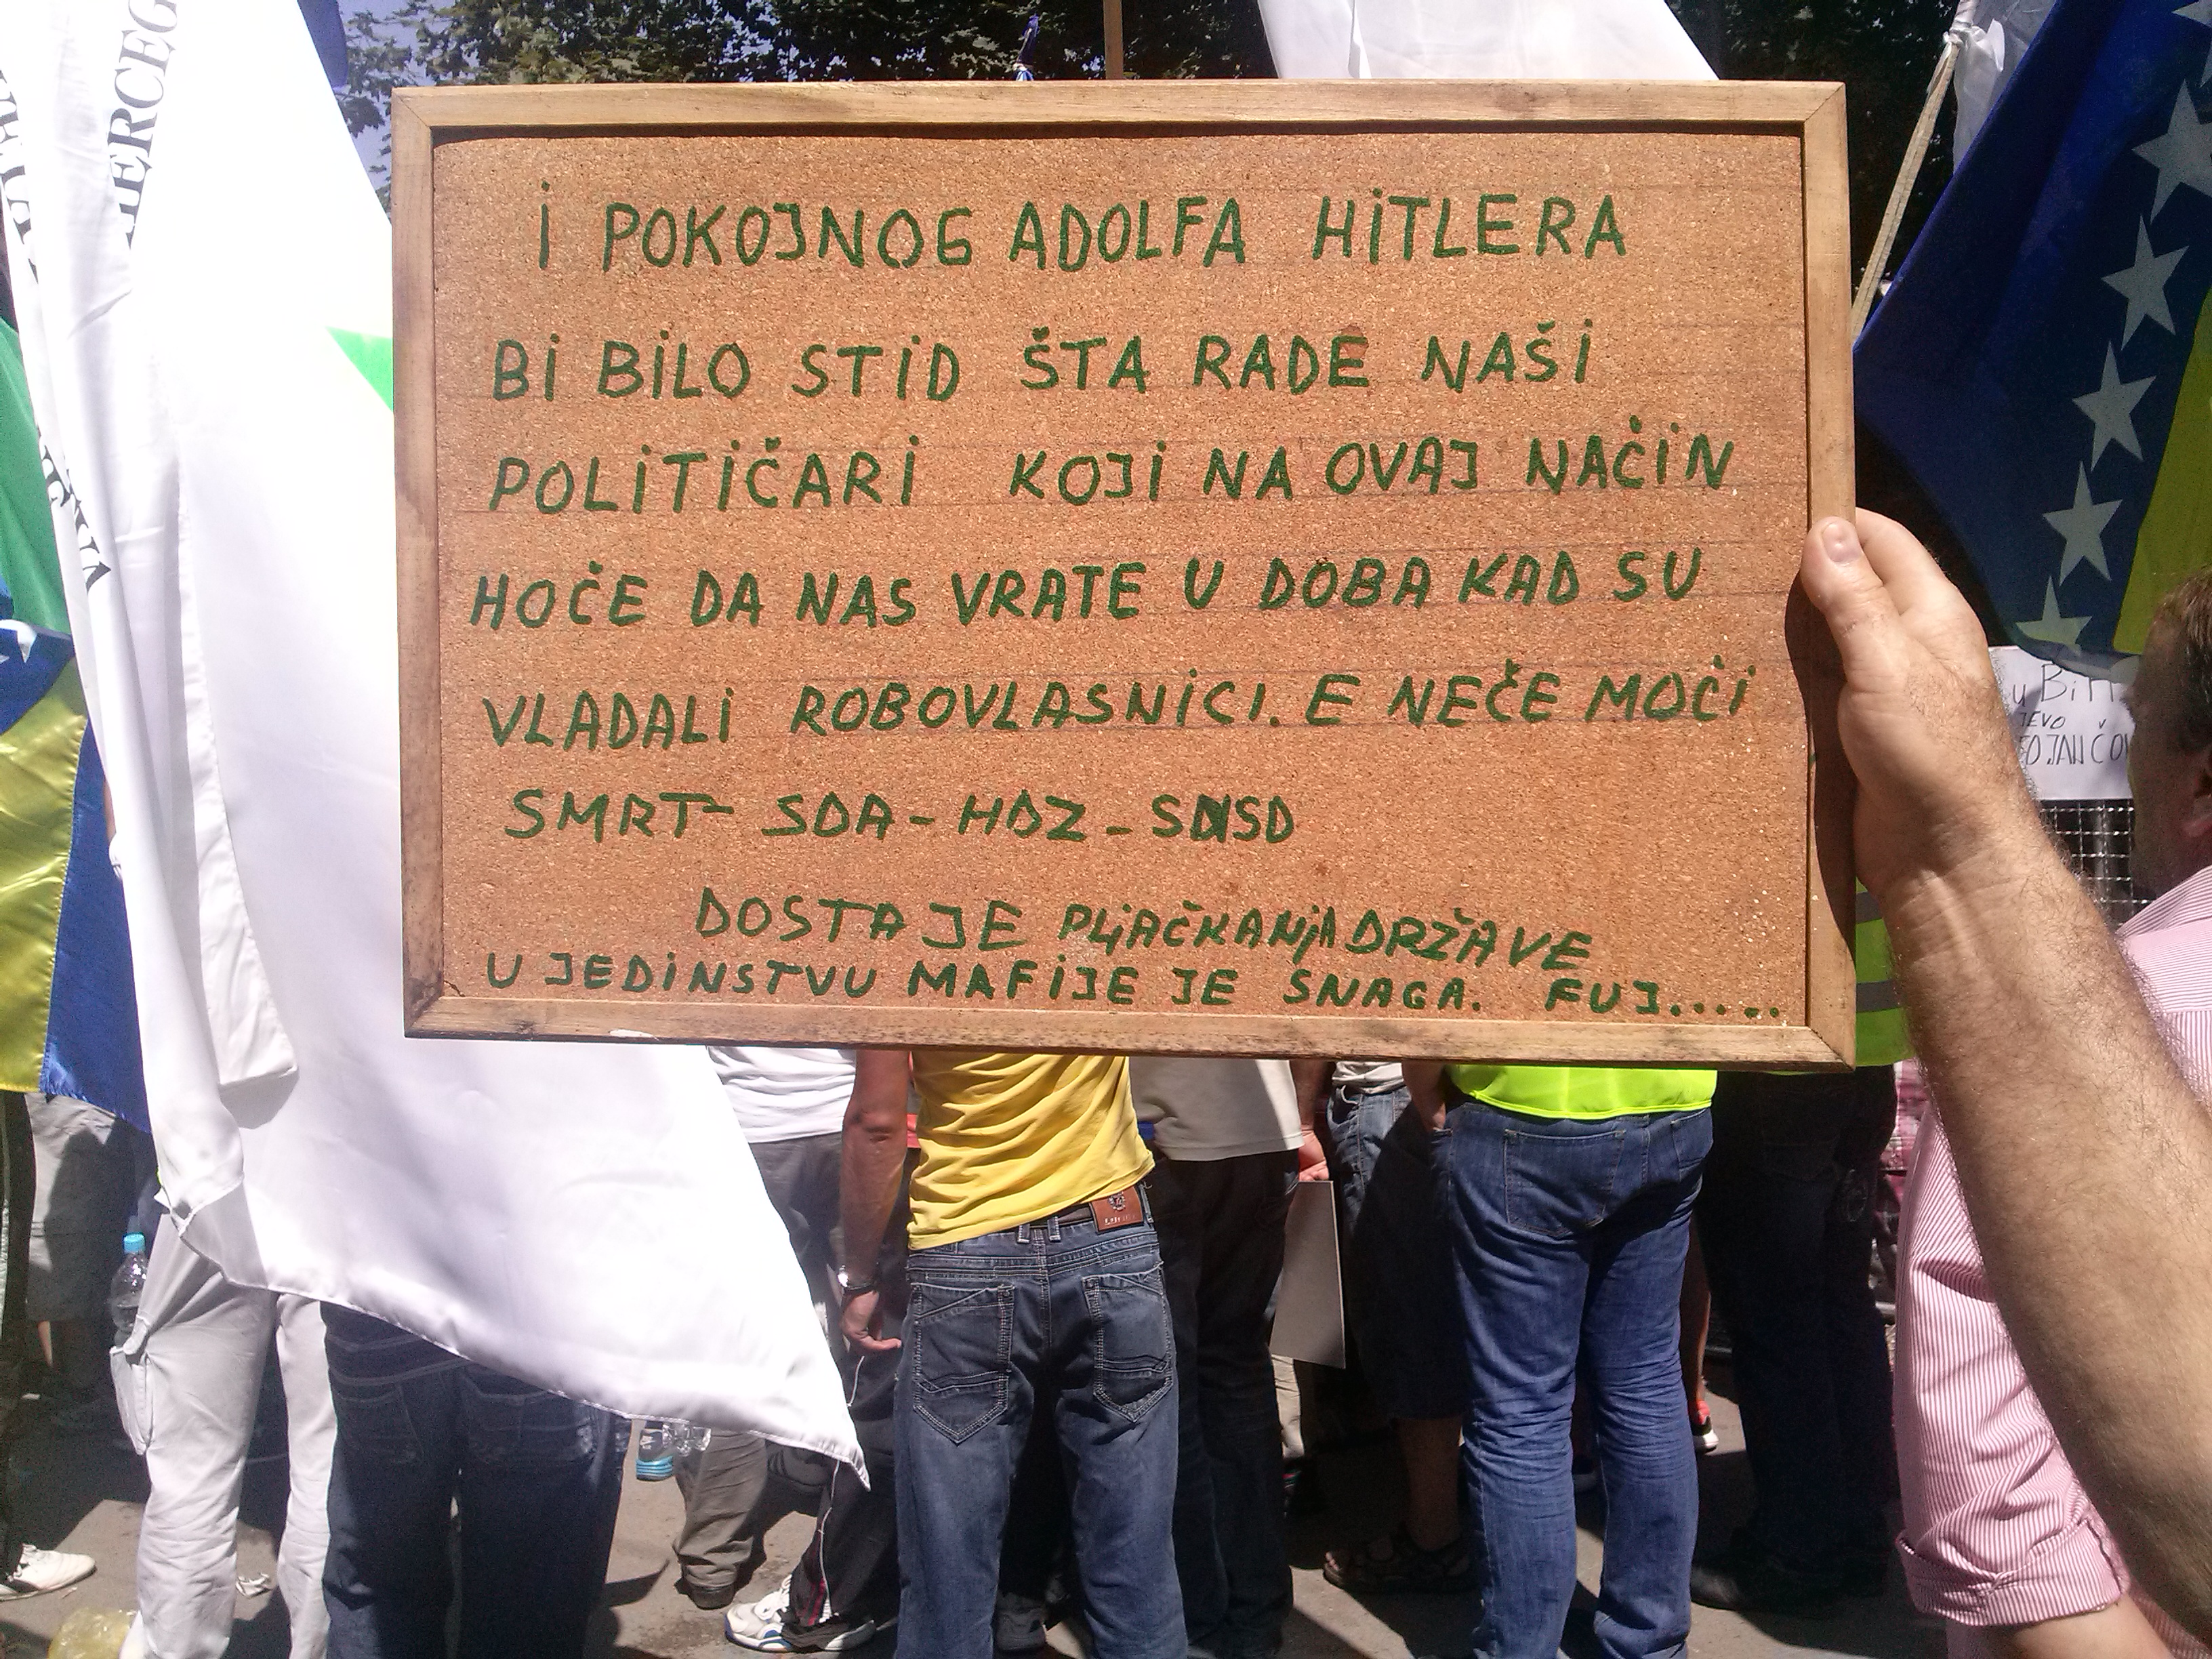 I POKOJNOG ADOLFA HITLERA
BI BILO STID ŠTA RADE NAŠI
POLITIČARI KOJI NA OVAJ NAČIN
HOČE DA NAS VRATE U DOBA KAD SU
VLADALI ROBOVLASNICI. E NEČE MOĆI
SMRT- SDA-HDZ-SNSD
DOSTA JE PLJAČKANJA DRŽAVE
U JEDINSTVU MAFIJE JE SNAGA. FUJ.....
HERCEG
u BiH